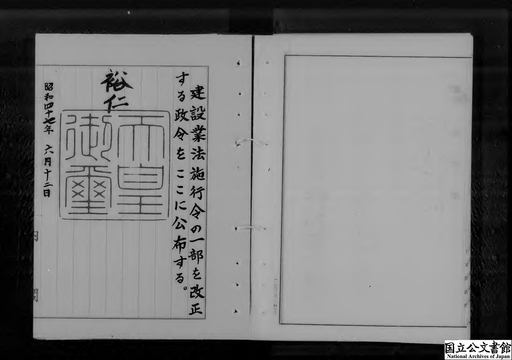 建設業法施行令の一部を改正
する政令をここに公布する。
裕仁
天皇
御璽
昭和四十七年六月十二日
内閣
国立公文書館
National Archives of Japan